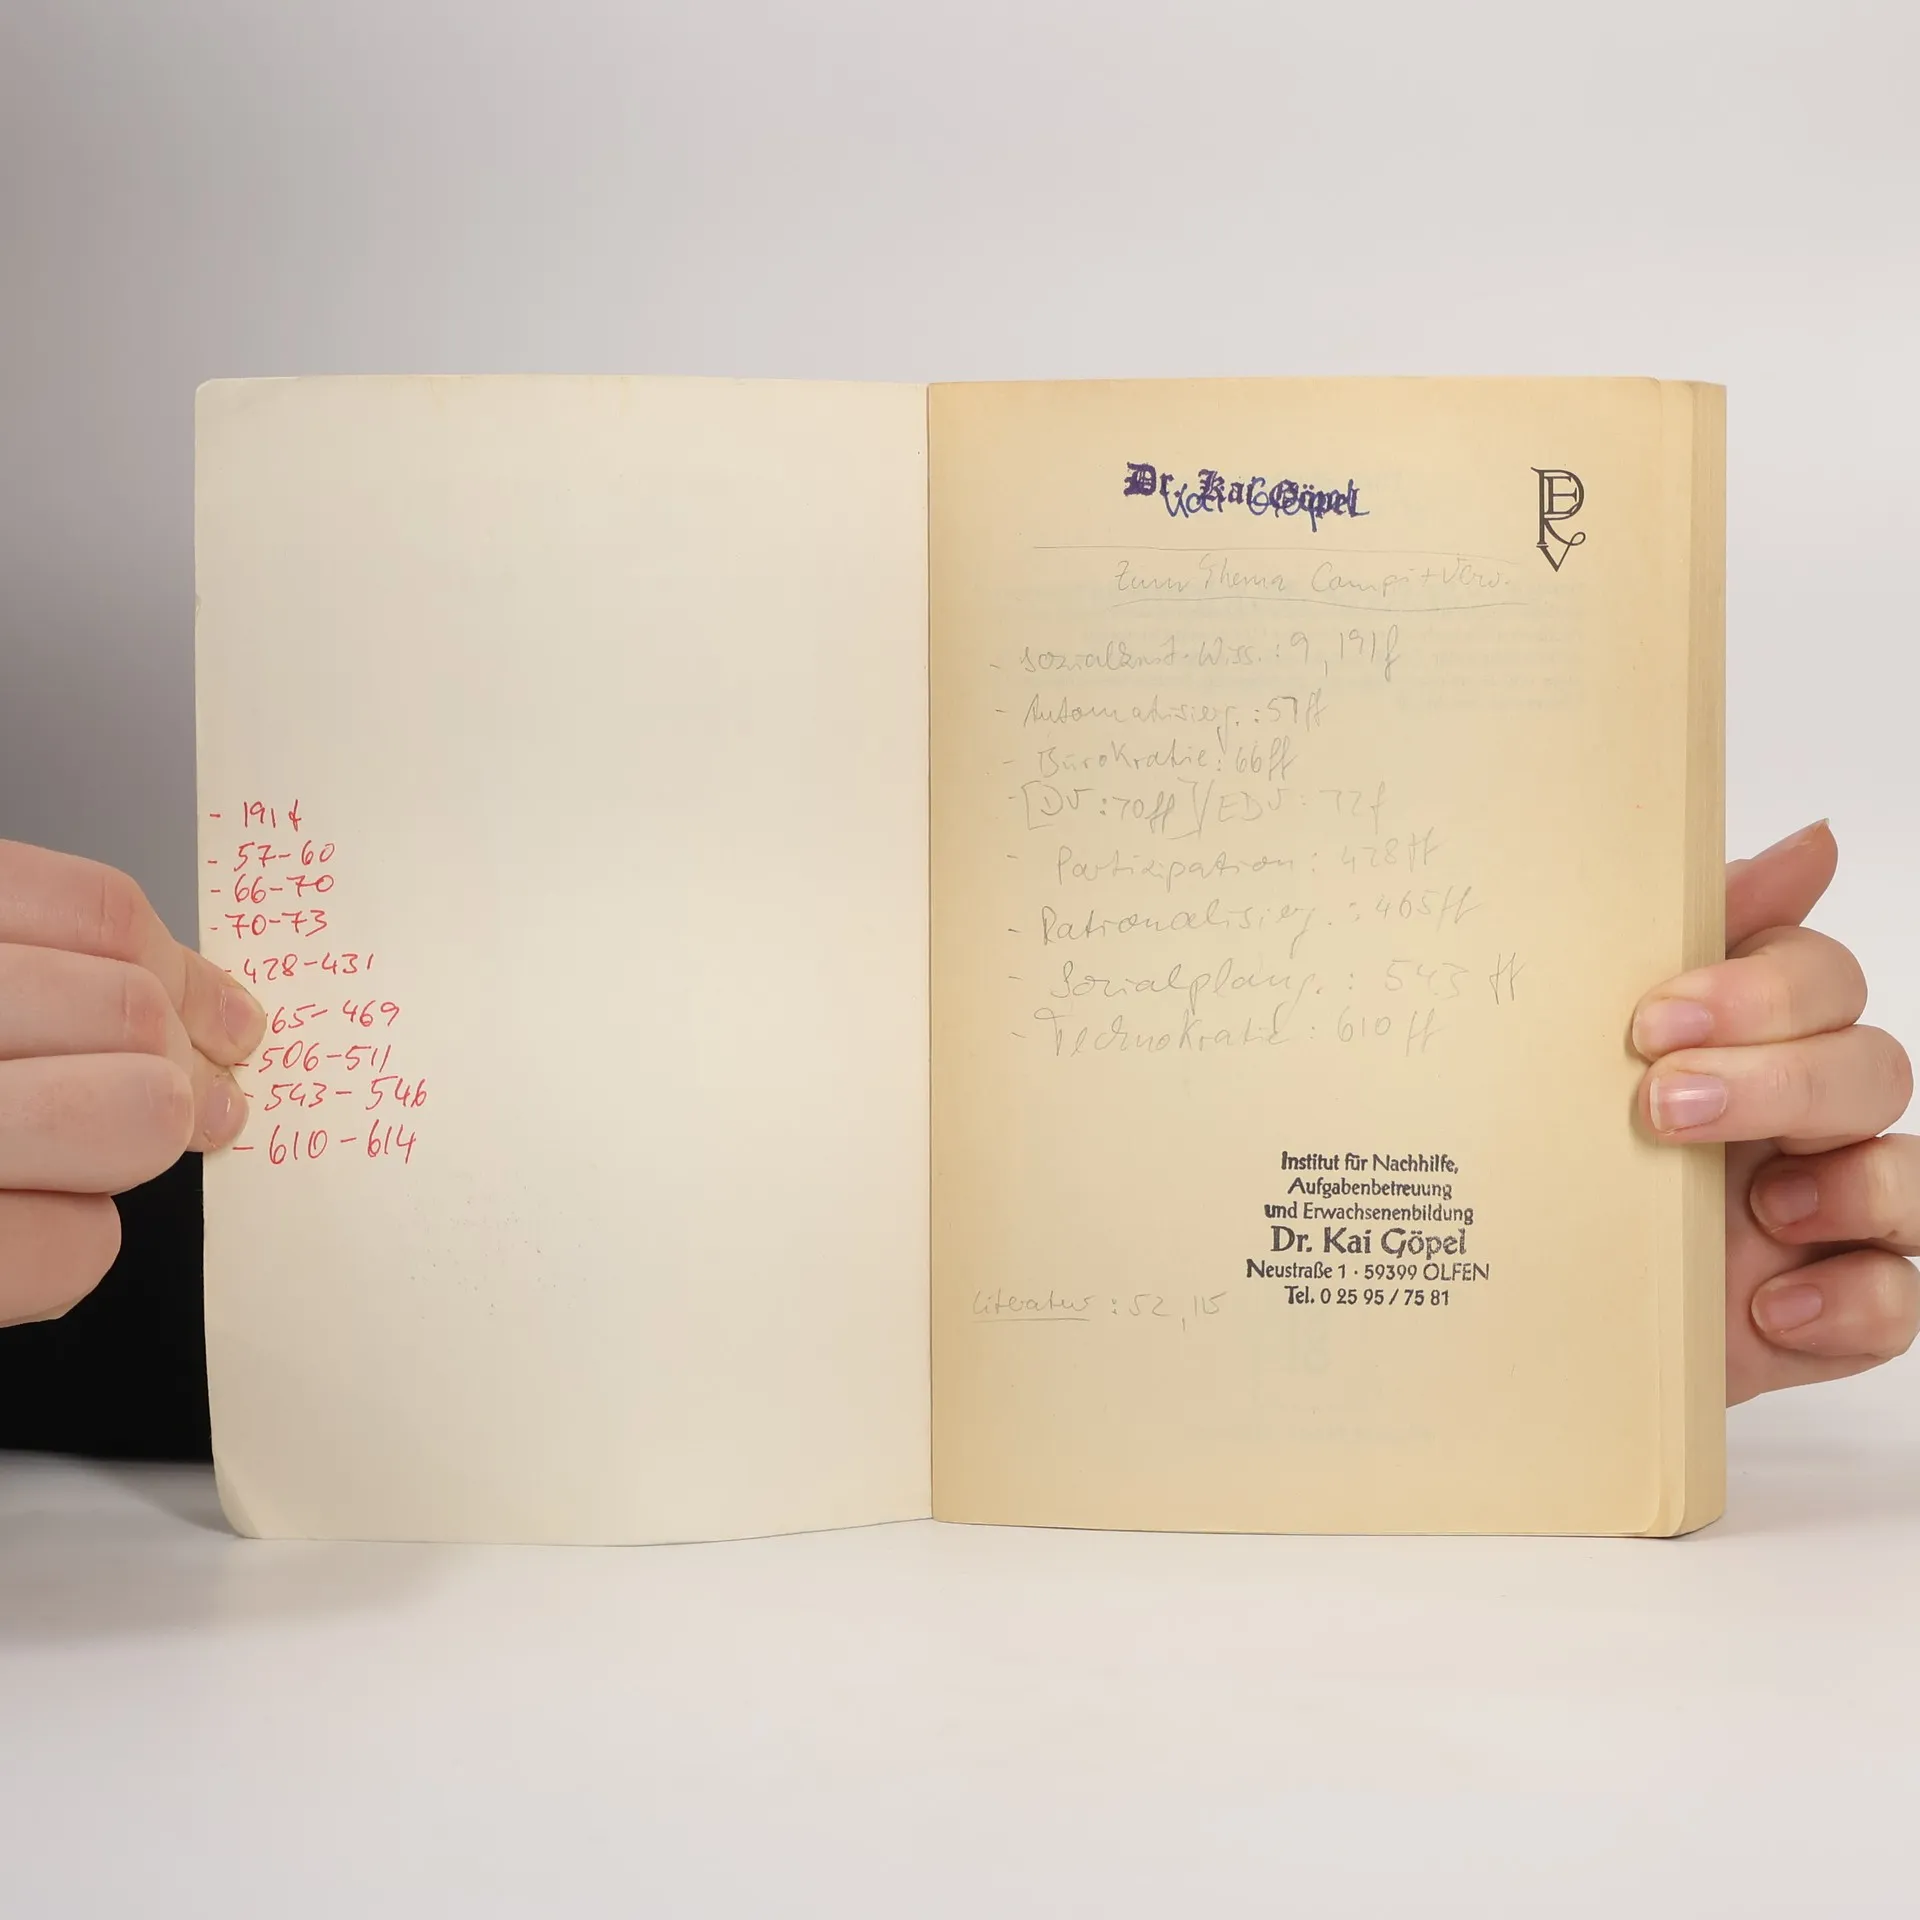 - 191 f
- 57-60
- 66-70
- 70-73
- 428-431
65-469
- 506-511
- 543-546
- 610-614
Dr. Kai Göpel
Kai Göpel
Zum Thema
- Wiss. : 9, 191f
- Automatisierg. : 57ff
- Bürokratie : 66ff
- [DV : 70ff] / EDV : 72f
- Partizipation : 428ff
- Rationalisierg. : 465ff
- Sozialplang. : 543 ff
- Technokratie : 610 ff
Institut für Nachhilfe,
Aufgabenbetreuung
und Erwachsenenbildung
Dr. Kai Göpel
Neustraße 1 · 59399 OLFEN
Tel. 0 25 95 / 75 81
Literatur : 52, 115